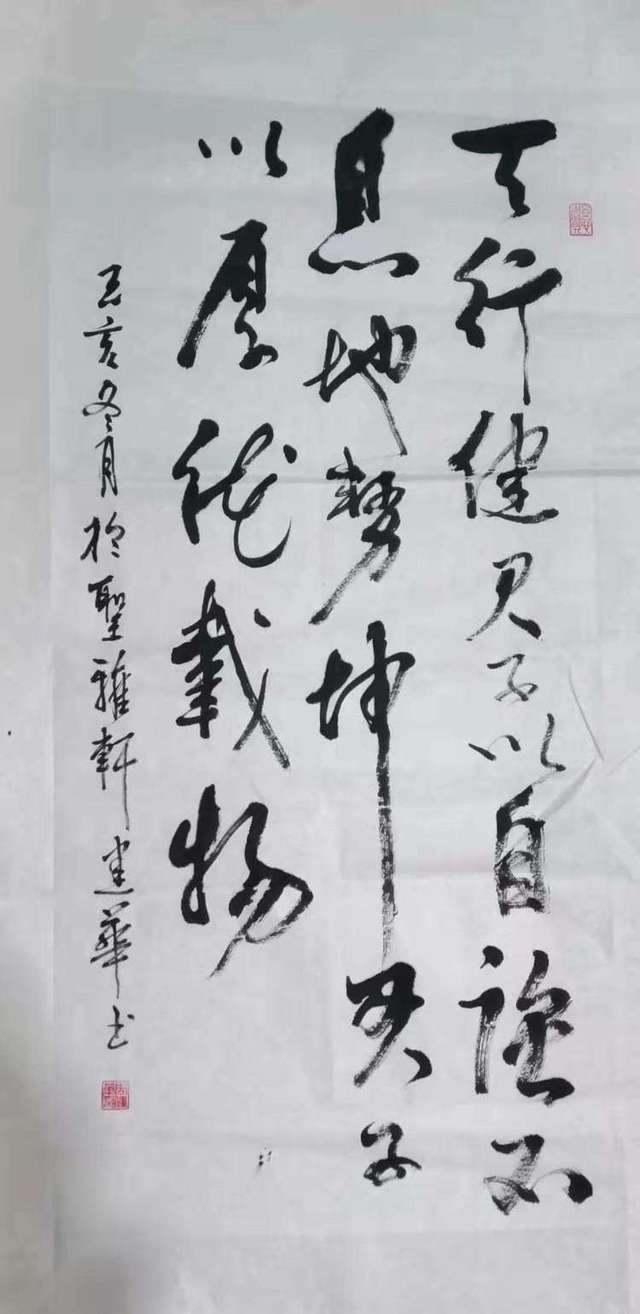 天行健君子以自强不
息地势坤君子
以厚德载物
亥冬月於聖雅軒建華书